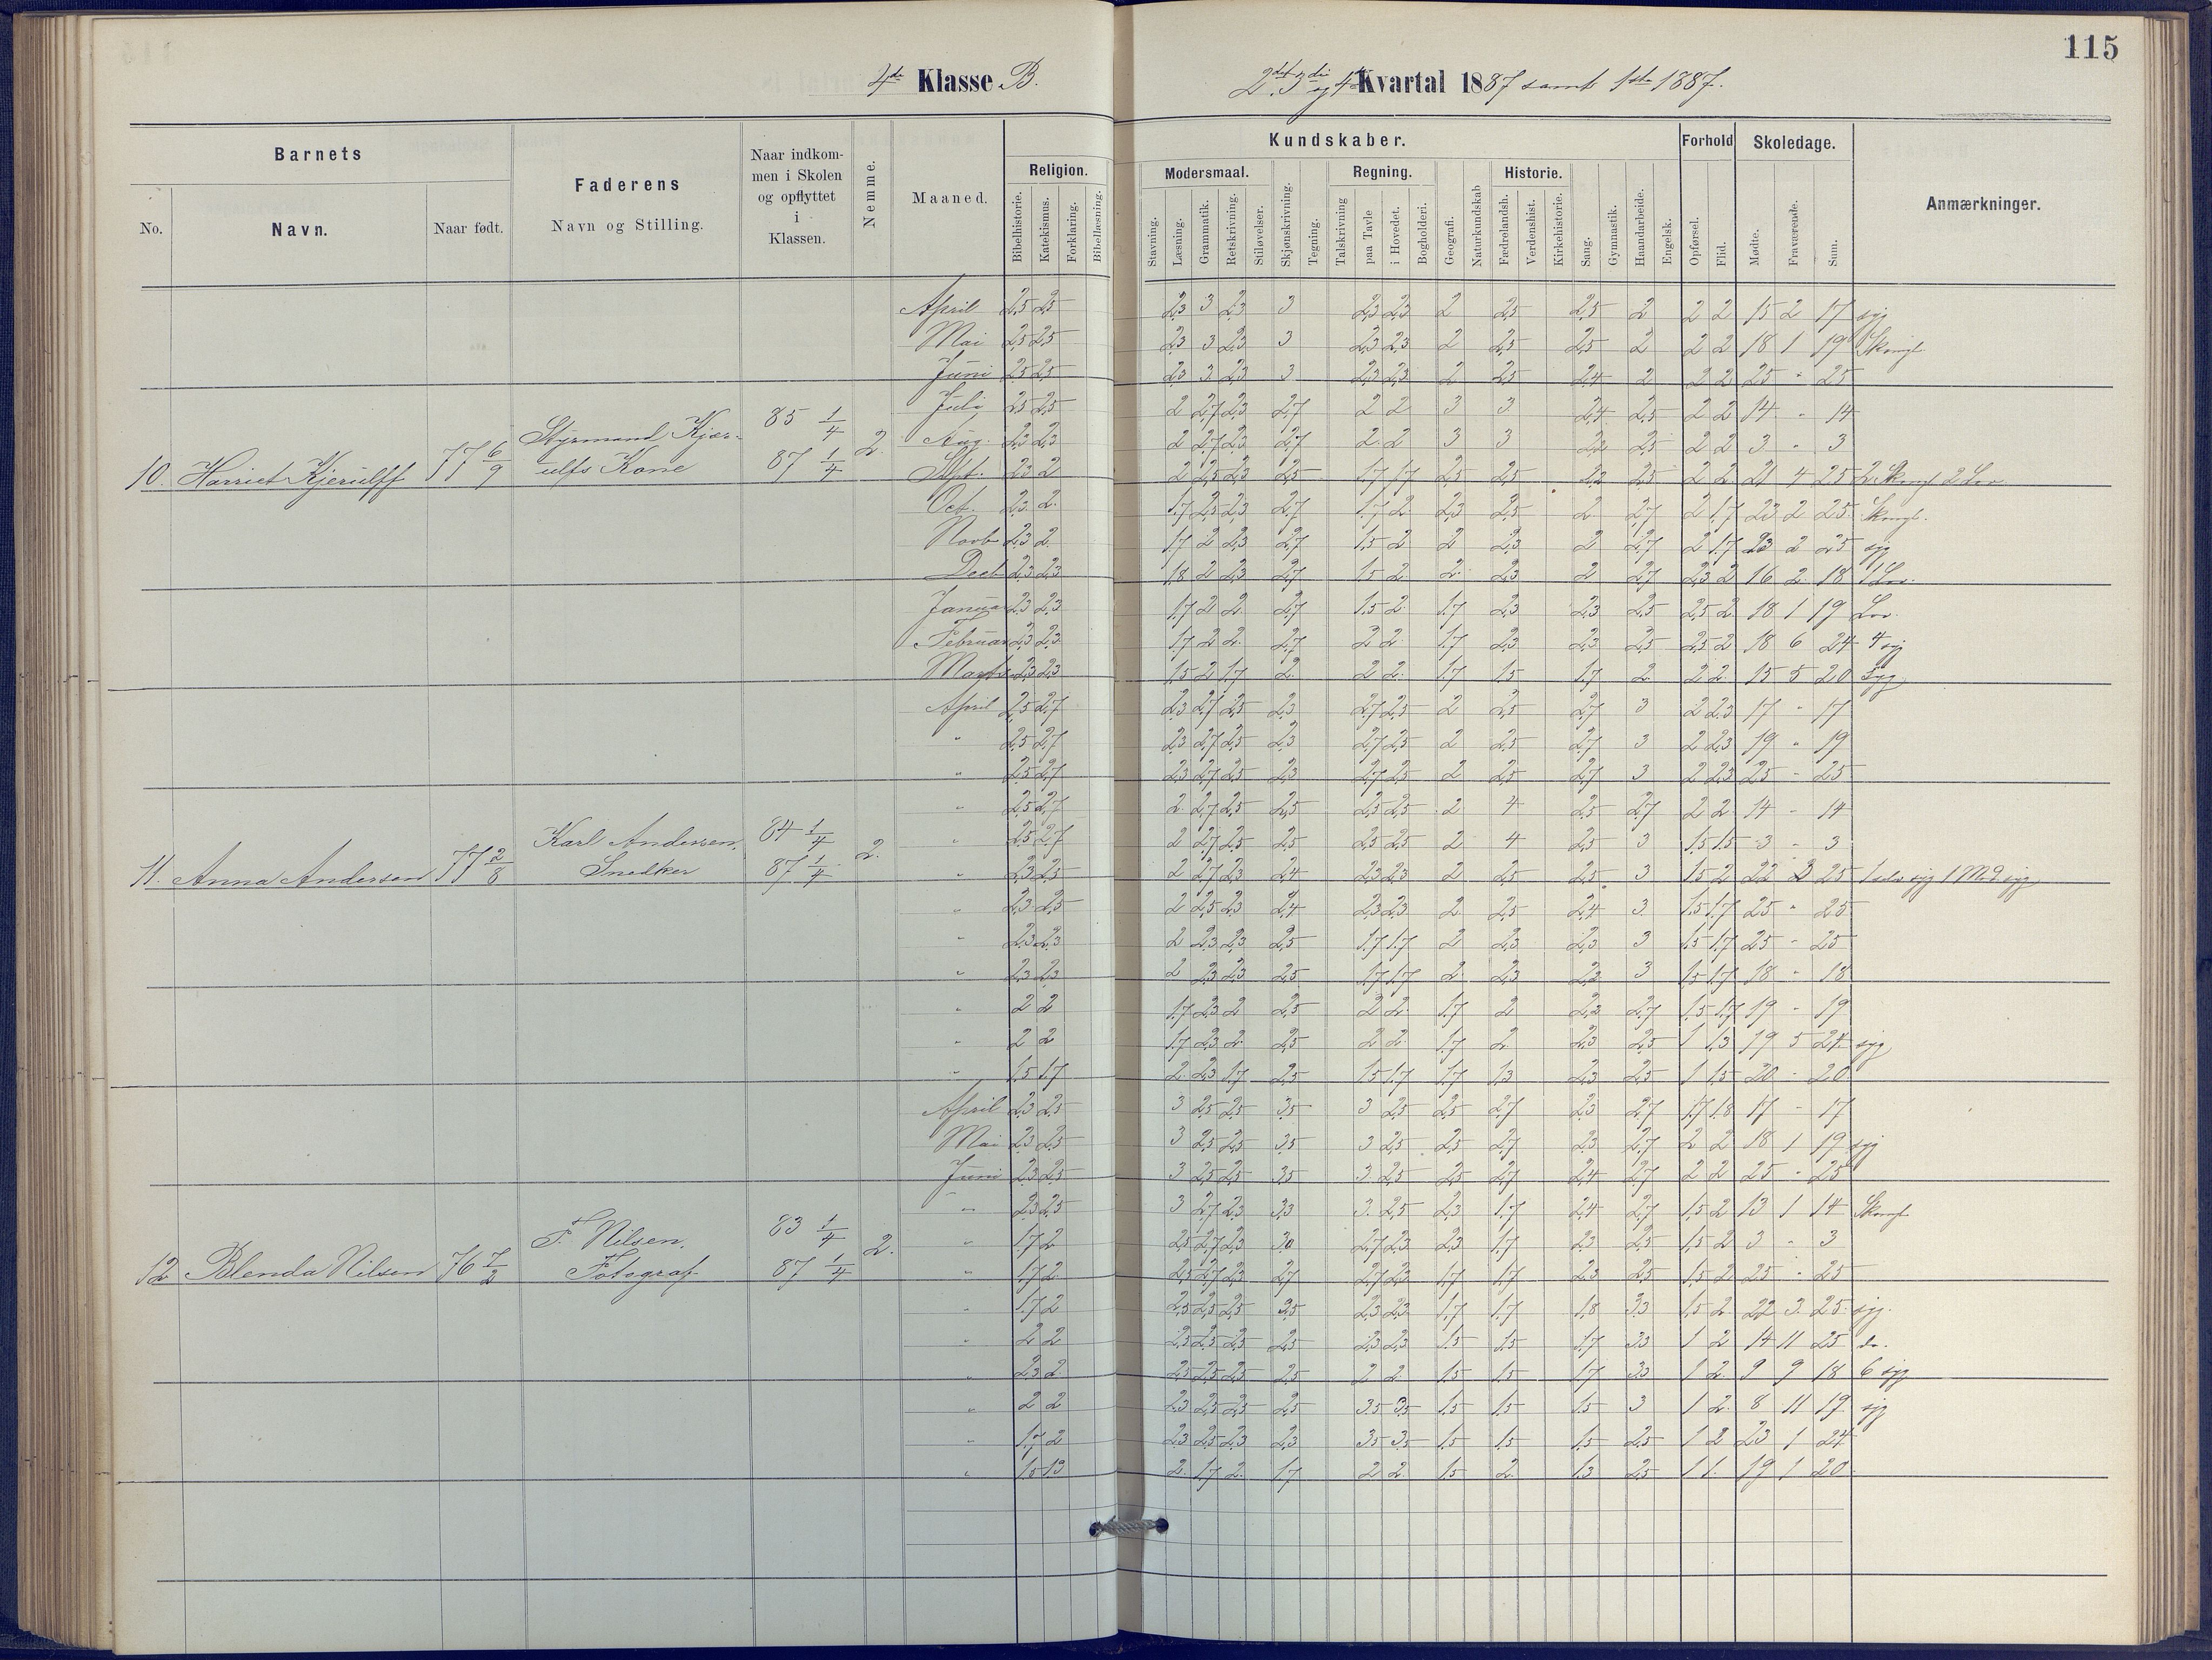 115
4de Klasse B.
2det 3die og 4de Kvartal 1887 samt 1ste 1887.
Barnets
No.
Navn.
Naar født.
Faderens
Navn og Stilling.
Naar indkom-
men i Skolen
og opflyttet
i
Klassen.
Nemme.
Maaned.
Religion.
Bibelhistorie.
Katekismus.
Forklaring.
Bibellæsning.
Kundskaber.
Modersmaal.
Stavning.
Læsning.
Grammatik.
Retskrivning.
Stiløvelser.
Skjønskrivning.
Tegning.
Regning.
Talskrivning
paa Tavle
i Hovedet.
Bogholderi.
Geografi.
Naturkundskab
Historie.
Fædrelandsh.
Verdenshist.
Kirkehistorie.
Sang.
Gymnastik.
Haandarbeide.
Engelsk.
Forhold
Opførsel.
Flid.
Skoledage.
Mødte.
Fraværende.
Sum.
Anmærkninger.
April 2,5 2,5 2,3 3 2,3 3 2,3 2,3 2 2,5 2,5 2 2 2 15 2 17 syg
Mai 2,5 2,5 2,3 3 2,3 3 2,3 2,3 2 2,5 2,5 2 2 2 18 1 19 Skomgl.
Juni 2,5 2,5 2,3 3 2,3 3 2,3 2,3 2 2,5 2,4 2 2 2 25 " 25
Juli 2,5 2,5 2 2,7 2,3 2,7 2 2 3 3 2,4 2,5 2 2 14 " 14
Aug. 2,3 2,3 2 2,7 2,3 2,7 2 2 3 3 2,2 2,5 2 2 3 " 3
10. Harriet Kjerulff 77 6/9 Styrmand Kjær-
ulfs Kone 85 1/4
87 1/4 2.
Sept. 2,3 2 2 2,5 2,3 2,5 1,7 1,7 2,5 2,5 2,2 2,5 2 2 21 4 25 2 Skomgl 2 Lov
Oct. 2,3 2 1,7 2,5 2,3 2,7 1,7 2 2,3 2,5 2 2,7 2 1,7 23 2 25 Skomgl.
Novb 2,3 2 1,7 2 2,3 2,7 1,5 2 2 2,3 2 2,7 2 1,7 23 2 25 syg
Decb 2,3 2,3 1,8 2 2,3 2,7 1,5 2 2 2,3 2 2,7 2,3 2 16 2 18 1 Lov.
Januar 2,3 2,3 1,7 2 2 2,7 1,5 2 1,7 2,3 2,3 2,5 2,5 2 18 1 19 Lov.
Februar 2,3 2,3 1,7 2 2 2,7 2 2 1,7 2,3 2,3 2,5 2,5 2 18 6 24 4 syg
Marts 2,3 2,3 1,5 2 1,7 2 2 2 1,7 1,5 1,7 2 2 2 15 5 20 syg
April 2,5 2,7 2,3 2,7 2,5 2,3 2,7 2,5 2 2,5 2,7 3 2 2,3 17 " 17
" 2,5 2,7 2,3 2,7 2,5 2,3 2,7 2,5 2 2,5 2,7 3 2 2,3 19 " 19
" 2,5 2,7 2,3 2,7 2,5 2,3 2,7 2,5 2 2,5 2,7 3 2 2,3 25 - 25
" 2,5 2,7 2 2,7 2,5 2,5 2,5 2,5 2 4 2,5 2,7 2 2 14 - 14
" 2,5 2,7 2 2,7 2,5 2,5 2,5 2,5 2 4 2,5 3 1,5 1,5 3 - 3
11. Anna Andersen 77 2/8 Karl Andersen,
Snedker 84 1/4
87 1/4 2.
" 2,3 2,5 2 2,7 2,3 2,4 2,3 2,3 2 2,5 2,5 3 1,5 2 22 3 25 1 selv syg 1 Mod. syg
" 2,3 2,5 2 2,5 2,3 2,4 2,3 2,3 2 2,5 2,4 3 1,5 1,7 25 " 25
" 2,3 2,3 2 2,3 2,3 2,5 1,7 1,7 2 2,3 2,3 3 1,5 1,7 25 - 25
" 2,3 2,3 2 2,3 2,3 2,5 1,7 1,7 2 2,3 2,2 3 1,5 1,7 18 " 18
" 2 2 1,7 2,3 2 2,5 2 2 1,7 2 2,2 2,7 1,5 1,7 19 " 19
" 2 2 1,7 2,3 2 2,5 2 2 1,7 2 2,3 2,5 1 1,3 19 5 24 syg
" 1,5 1,7 2 2,3 1,7 2,5 1,5 1,7 1,7 1,3 2,3 2,5 1 1,5 20 - 20
April 2,3 2,5 3 2,5 2,5 3,5 3 2,5 2,5 2,7 2,3 2,7 1,7 1,8 17 - 17
Mai 2,3 2,5 3 2,5 2,5 3,5 3 2,5 2,5 2,7 2,3 2,7 2 2 18 1 19 syg
Juni 2,3 2,5 3 2,5 2,5 3,5 3 2,5 2,5 2,7 2,4 2,7 2 2 25 - 25
" 2,3 2,5 3 2,7 2,3 3,3 3 2,5 2,3 1,7 2,4 2,7 1,5 2 13 1 14 Skomgl
" 1,7 2 2,5 2,7 2,3 3,0 2,7 2,3 2,3 1,7 2,3 2,5 1,5 2 3 " 3
12 Blenda Nilsen 76 7/2 F. Nilsen,
Fotograf 83 1/4
87 1/4 2.
" 1,7 2 2,5 2,7 2,3 2,7 2,7 2,3 1,7 1,7 2,3 2,5 1,5 2 25 " 25
" 1,7 2 2,5 2,5 2,5 2,5 2,3 2,3 1,7 1,7 1,8 3,3 1,5 2 22 3 25 syg.
" 2 2 2,5 2,5 2,5 2,5 2,3 2,3 1,5 1,5 1,7 3,3 1 2 14 11 25 do.
" 2,3 2 2,5 2,5 2,5 2,5 2 2 1,5 1,5 1,7 3,3 1 2 9 9 18 6 syg
" 2 2 2,3 2,5 2,5 2,5 3,5 3,5 1,5 1,5 1,5 3 1 2 8 11 19 syg
" 1,7 2 2,3 2,5 2,3 2,3 3,5 3,5 1,5 1,5 1,5 2,5 1 2 23 1 24
" 1,5 1,3 2 1,7 2 1,7 2 2 1,5 2 1,3 2,5 1 1 19 1 20